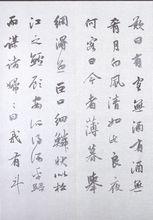 歎曰有客無酒有酒無
肴月白風清如此良夜
何客曰今者薄暮舉
網得魚巨口細鱗狀似松
江之鱸顧安所得酒乎歸
而謀諸婦〻曰我有斗